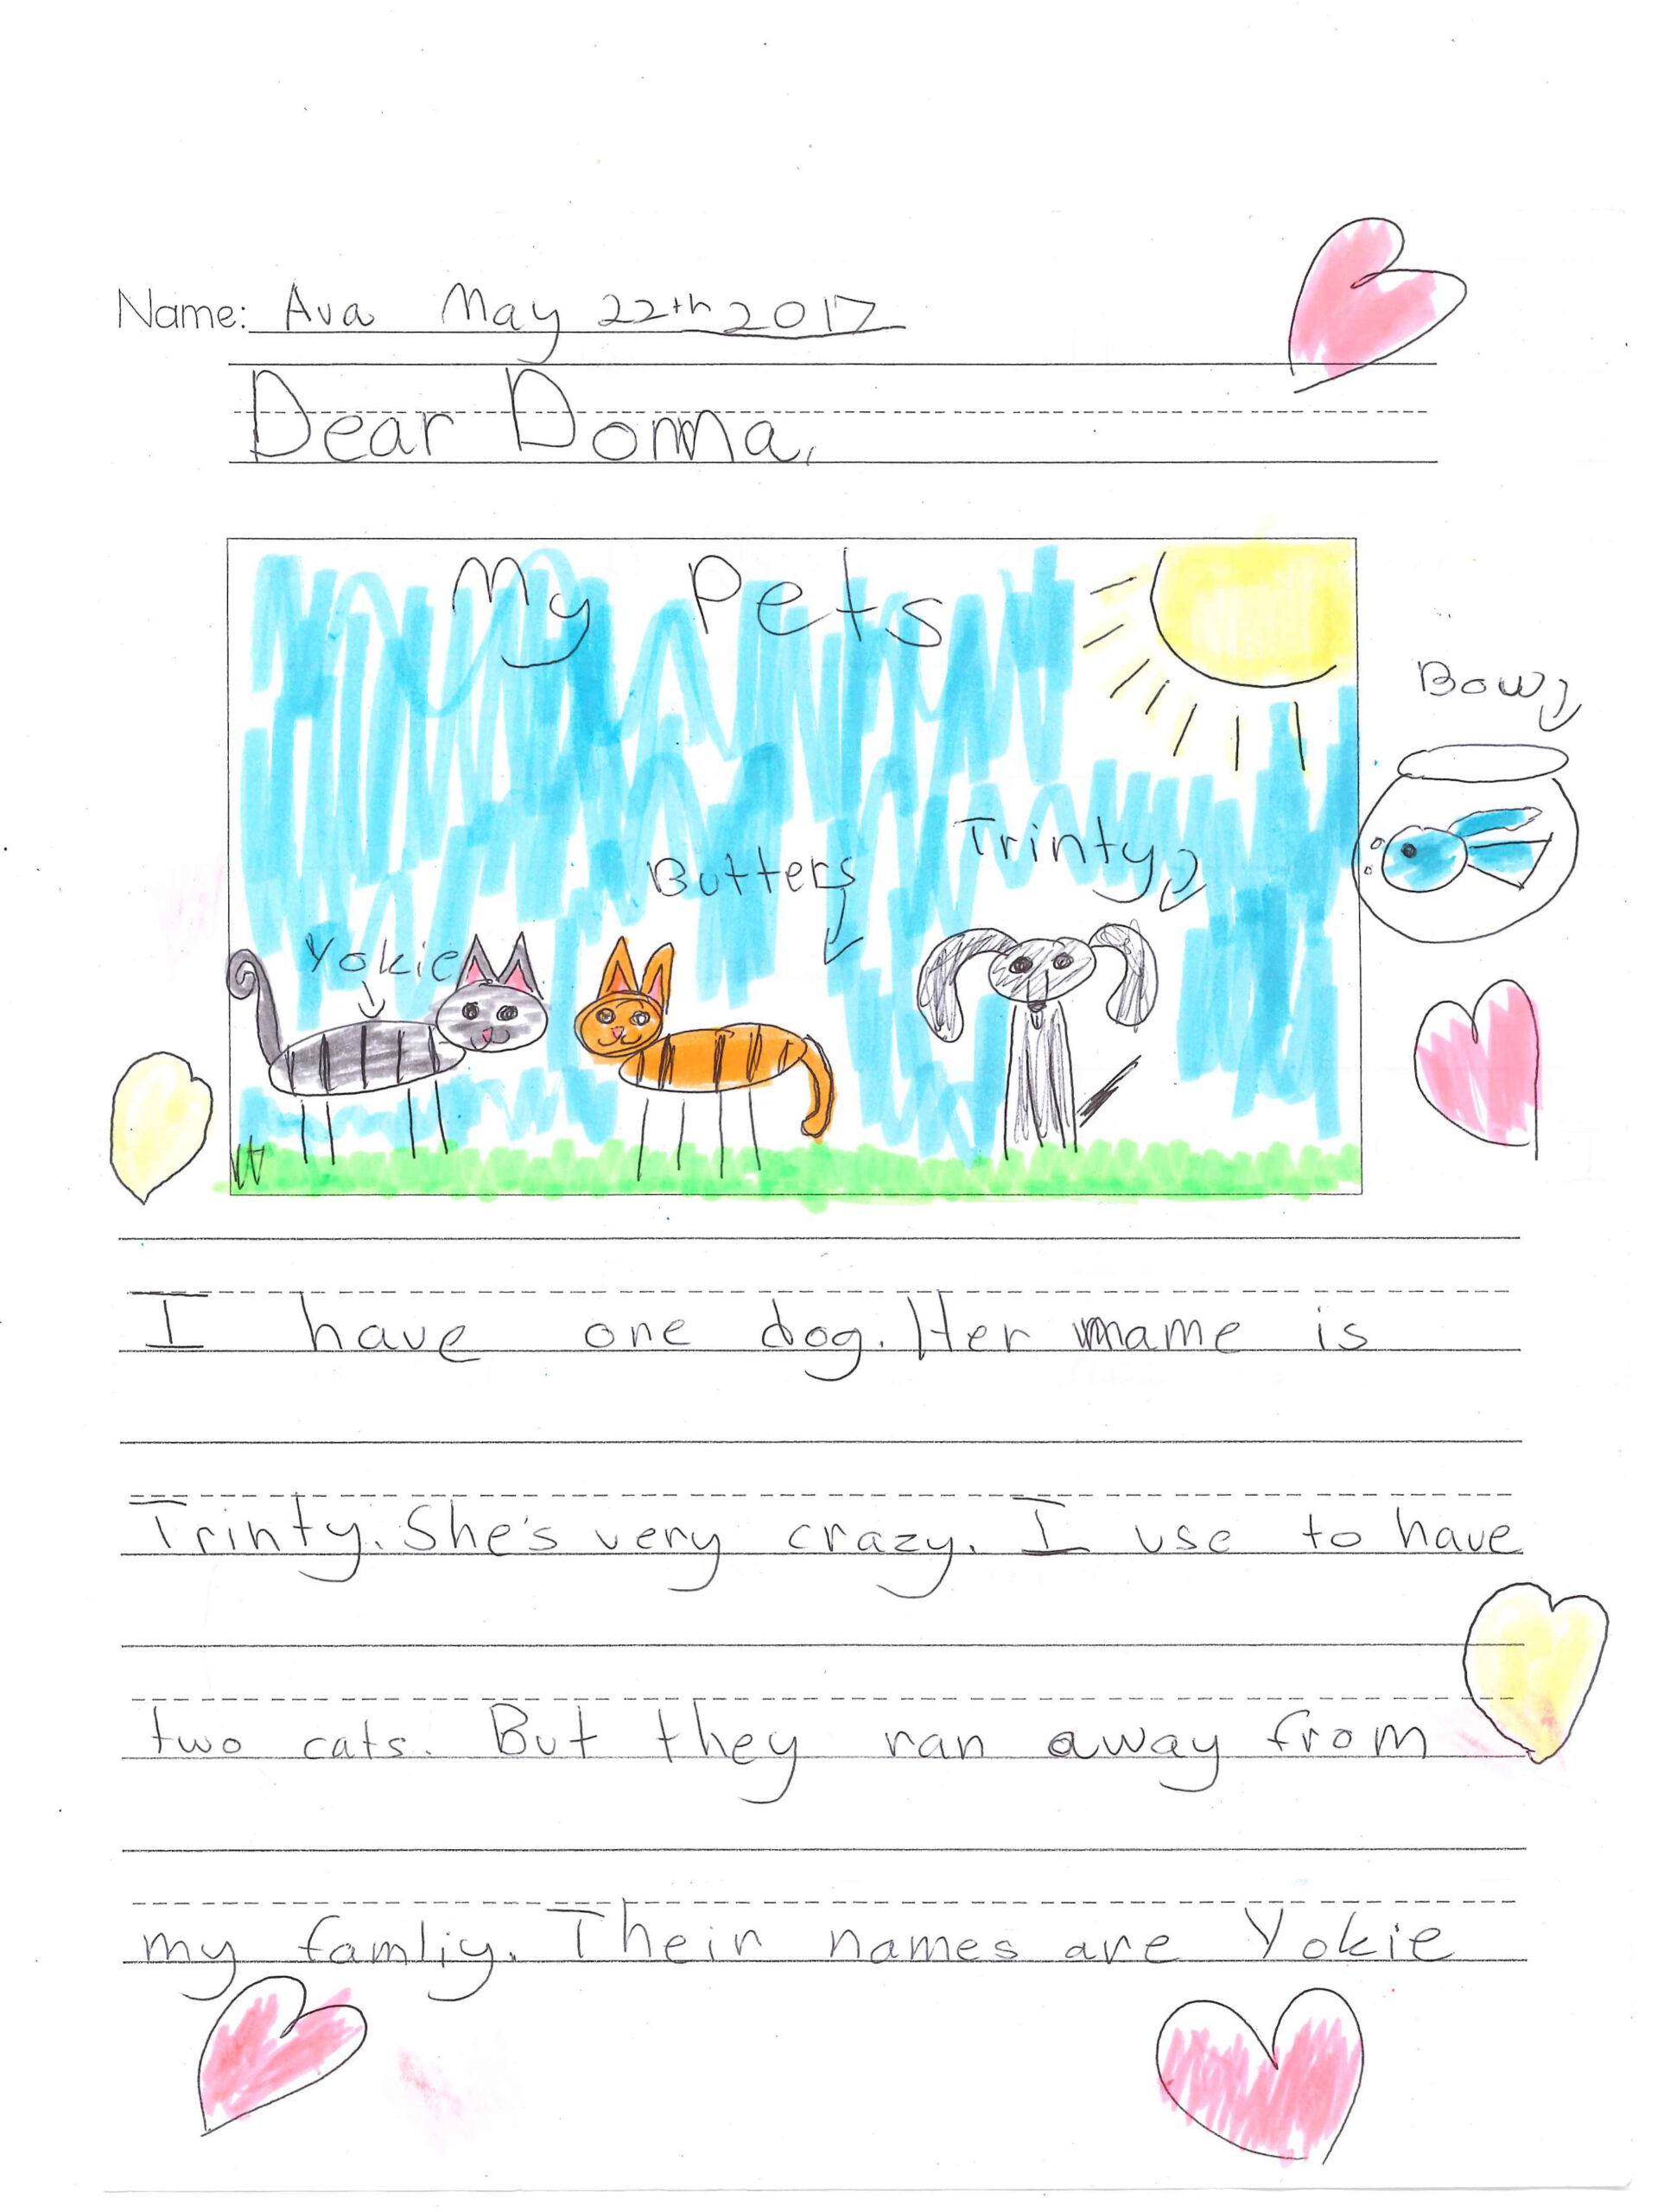 Name: Ava May 22th 2017
Dear Donna,
My Pets
Bow
Trinty
Butters
Yokie
I have one dog. Her name is
Trinty. She's very crazy. I use to have
two cats. But they ran away from
my famliy. Their names are Yokie